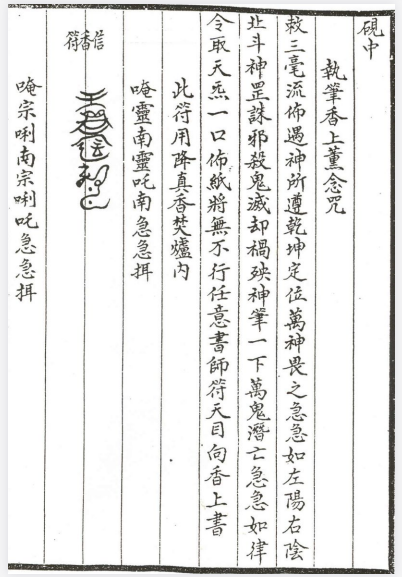 硯中
執筆香上薰念咒
敕三毫流佈遇神所遵乾坤定位萬神畏之急急如左陽右陰
北斗神罡誅邪殺鬼滅却禍殃神筆一下萬鬼潛亡急急如律
令取天炁一口佈紙將無不行任意書師符天目向香上書
此符用降真香焚爐內
唵靈南靈吒南急急揖
信香符
唵宗唎南宗唎吒急急揖